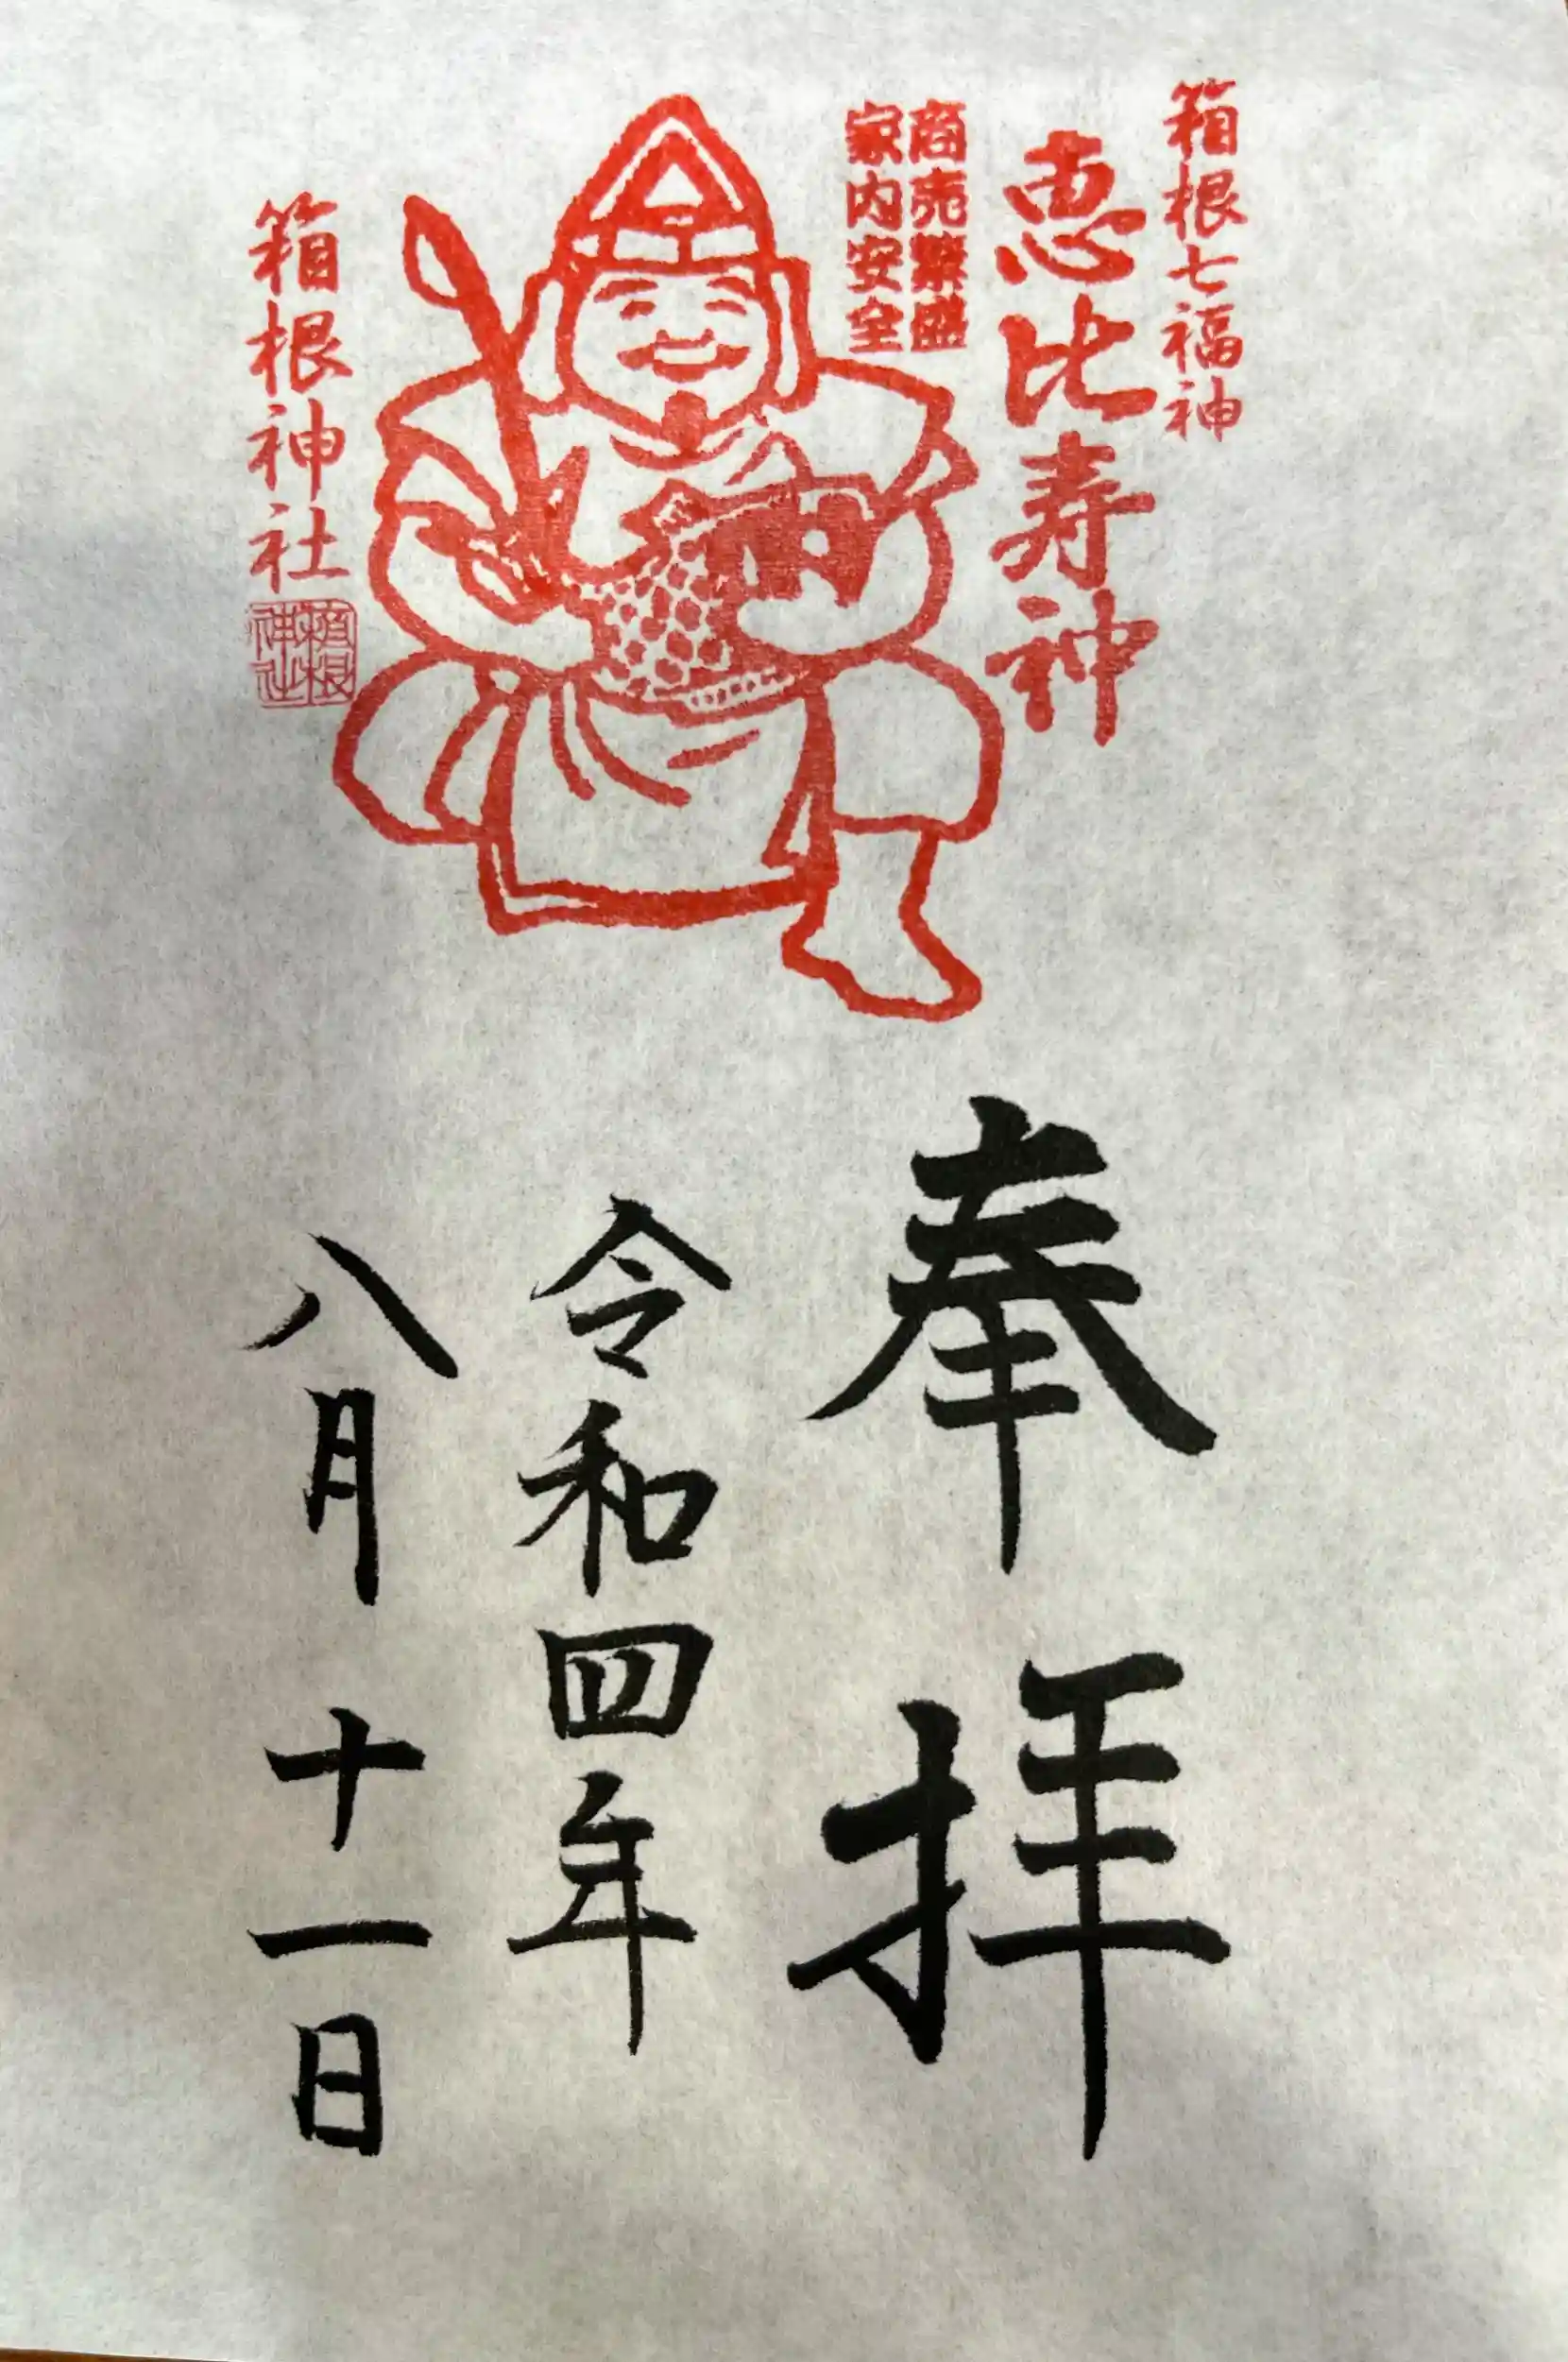 箱根七福神
恵比寿神
商売繁盛
家内安全
箱根神社
箱根
神社
奉拝
令和四年
八月十一日